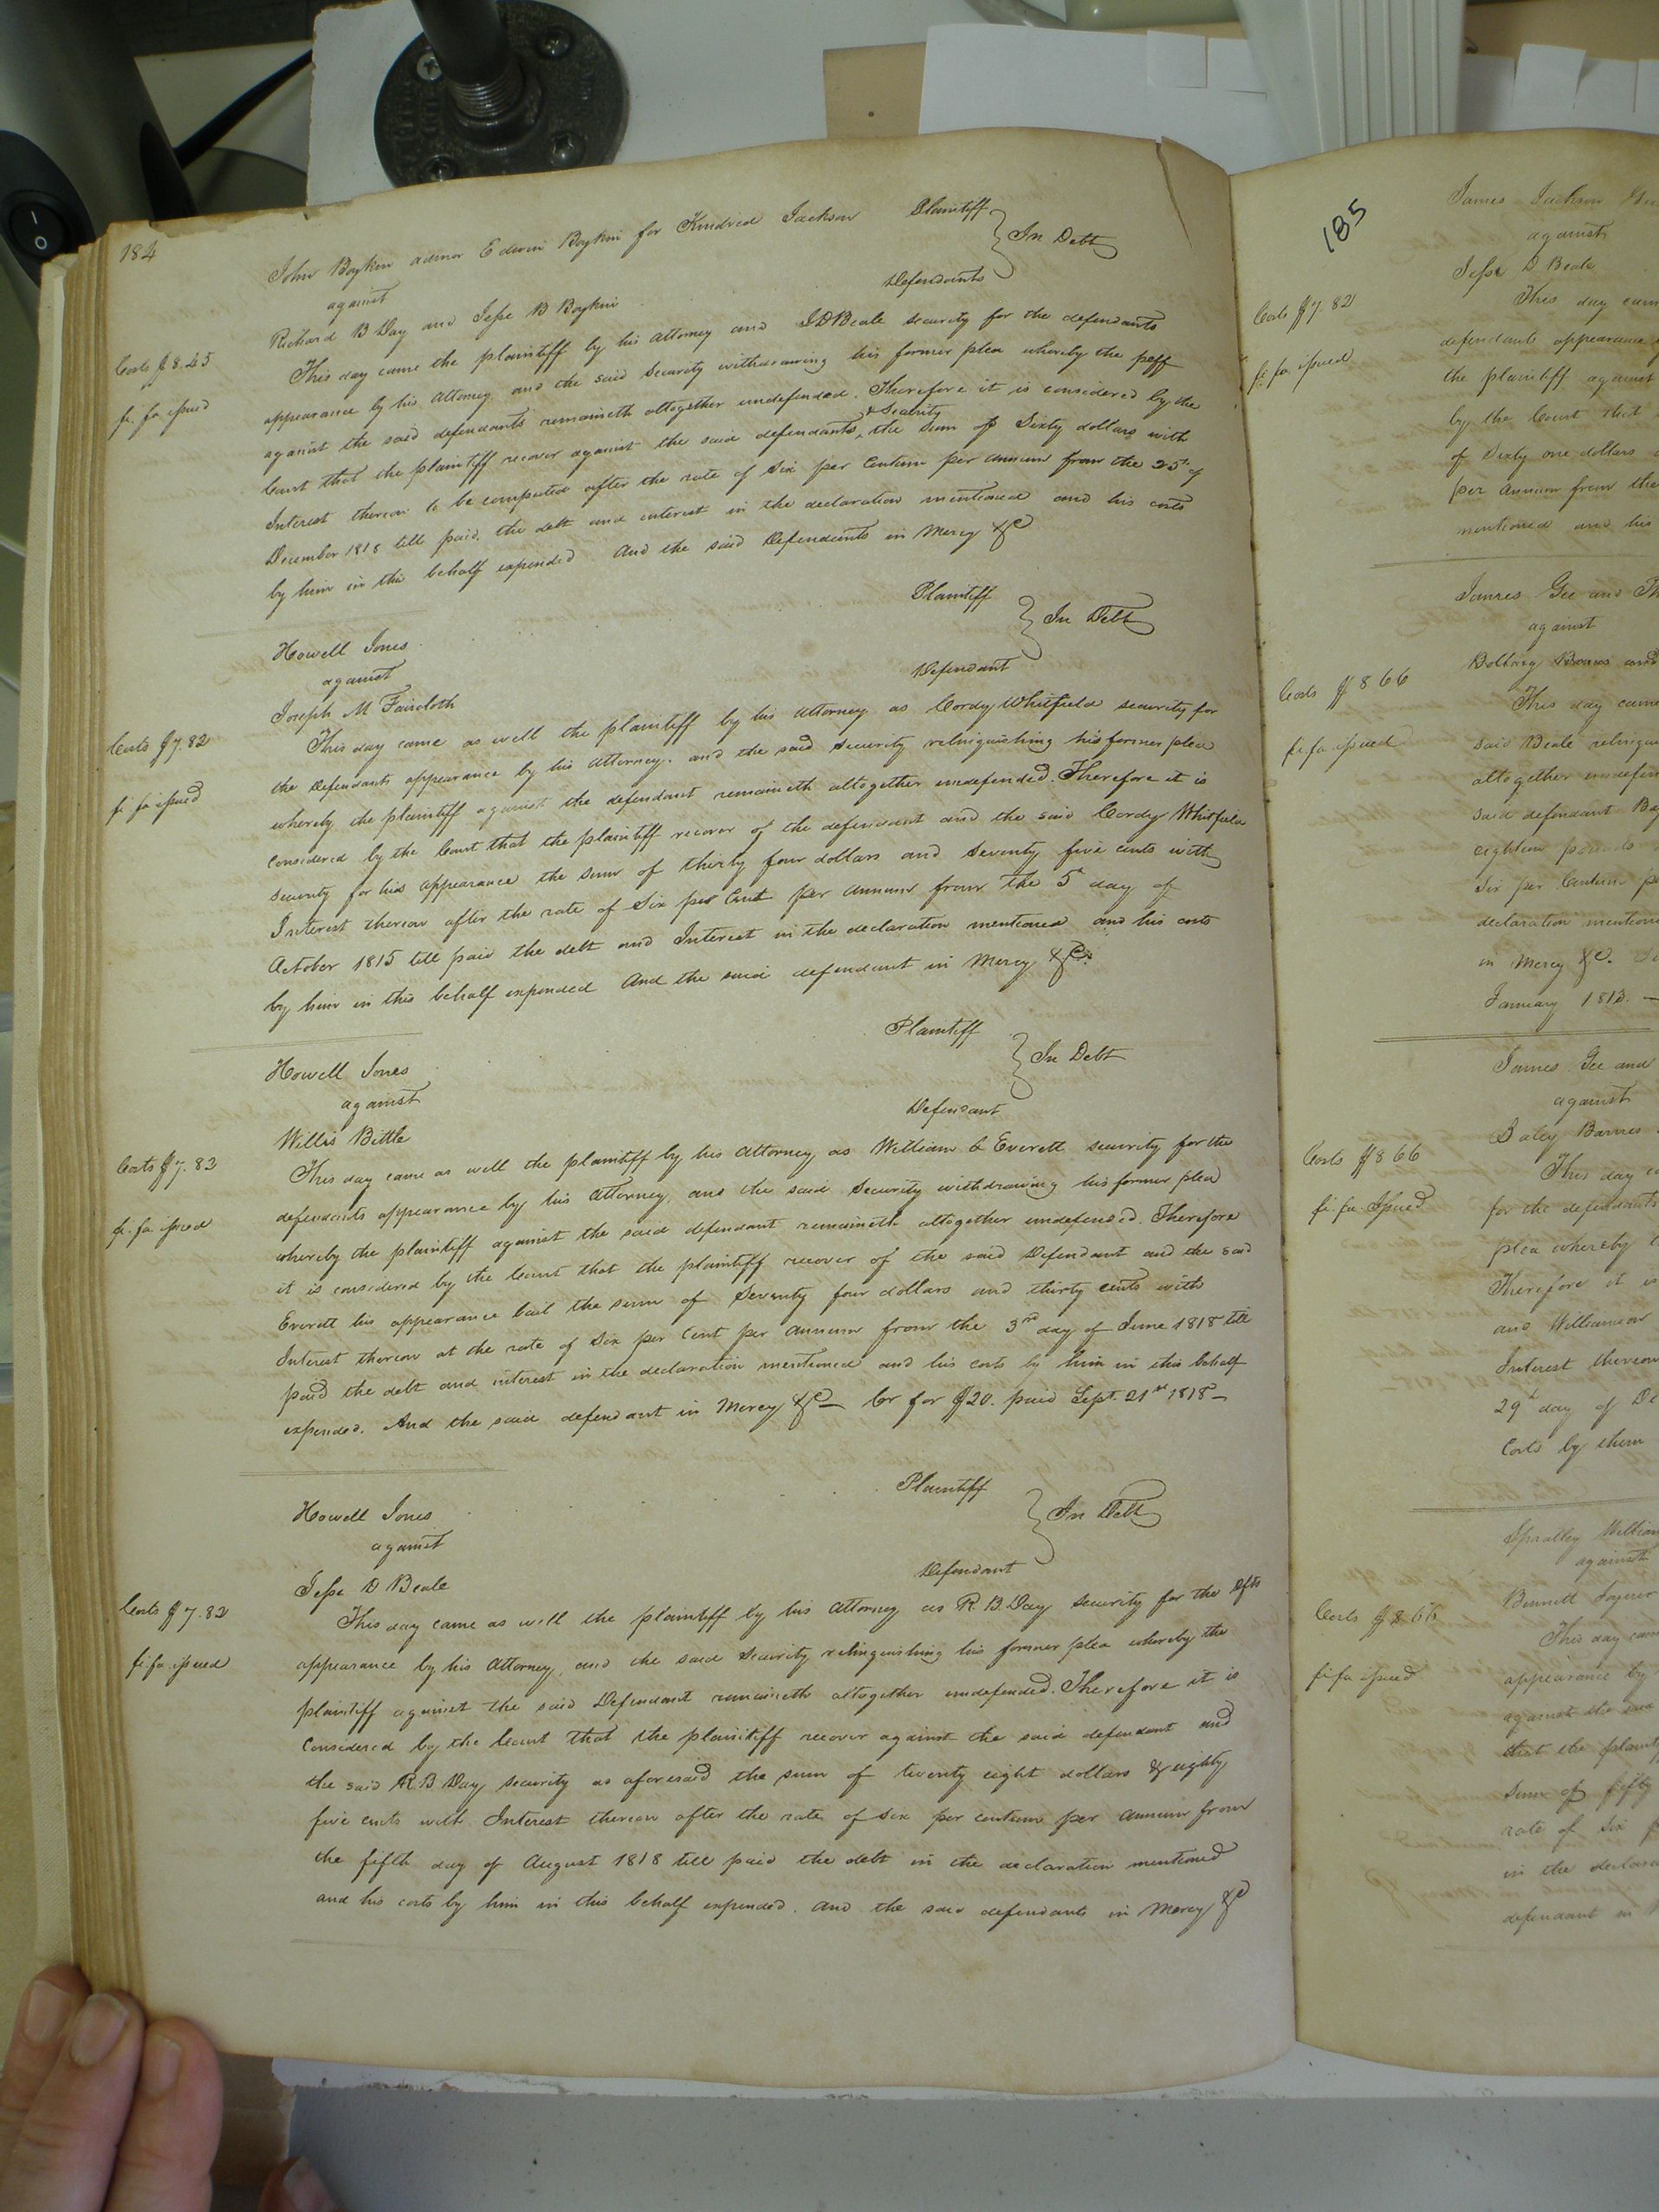 184
John Boykin admor Edwin Boykin for Kindred Jackson Plaintiff
against
In Debt
Richard B Day and Jesse B Boykin Defendants
Costs $8.45
This day came the plaintiff by his Attorney and J D Beale security for the defendants
fi. fa. issued
appearance by his Attorney and the said Security withdrawing his former plea whereby the peff
against the said defendants remaineth altogether undefended. Therefore it is considered by the
& Security
Court that the plaintiff recover against the said defendants, the Sum of Sixty dollars with
Interest thereon to be computed after the rate of Six per Centum per annum from the 25th of
December 1818 till paid, the debt and interest in the declaration mentioned and his costs
by him in this behalf expended And the said Defendants in Mercy &c
Howell Jones Plaintiff
against
In Debt
Joseph M Faircloth Defendant
Costs $7.82
This day came as well the plaintiff by his Attorney as Cordy Whitfield security for
the Defendants appearance by his Attorney. and the said Security relinquishing his former plea
fi. fa issued
whereby the plaintiff against the defendant remaineth altogether undefended. Therefore it is
Considered by the Court that the plaintiff recover of the defendant and the said Cordy Whitfield
security for his appearance the sum of thirty four dollars and Seventy five cents with
Interest thereon after the rate of Six per Cent per Annum from the 5th day of
October 1815 till paid the debt and Interest in the declaration mentioned and his costs
by him in this behalf expended And the said defendant in Mercy &c.
Howell Jones Plaintiff
against
In Debt
Willis Bittle Defendant
Costs $7.82
This day came as well the plaintiff by his Attorney as William C Everett security for the
defendants appearance by his Attorney, and the said Security withdrawing his former plea
fi. fa issued
whereby the plaintiff against the said defendant remaineth altogether undefended. Therefore
it is considered by the Court that the plaintiff recover of the said Defendant and the said
Everett his appearance bail the sum of Seventy four dollars and thirty cents with
Interest thereon at the rate of Six per Cent per Annum from the 3rd day of June 1818 till
paid the debt and interest in the declaration mentioned and his costs by him in this behalf
expended. And the said defendant in Mercy &c — Cr for $20. paid Sept. 21st 1818 —
Howell Jones Plaintiff
against
In Debt
Jesse D Beale Defendant
Costs $7.82
This day came as well the plaintiff by his Attorney as R. B. Day security for the Dfts
appearance by his Attorney, and the said Security relinquishing his former plea whereby the
fi. fa. issued
plaintiff against the said Defendant remaineth altogether undefended. Therefore it is
Considered by the Court that the plaintiff recover against the said defendant and
the said R. B Day security as aforesaid the sum of twenty eight dollars & eighty
five cents with Interest thereon after the rate of Six per centum per Annum from
the fifth day of August 1818 till paid the debt in the declaration mentioned
and his costs by him in this behalf expended. And the said defendants in Mercy &c
185
James Jackson
against
Jesse D Beale
Costs $7.82
This day came
defendants appearance
fi. fa issued
the plaintiff against
by the Court that
of Sixty one dollars
per Annum from the
mentioned and his
James Gee and
against
Barnes and
Costs $8 66
This day came
fi. fa. issued
said Beale
altogether
said defendant
eighteen pounds
Six per Centum
declaration
in Mercy &c.
January 1813. —
James Gee and
against
Barnes
Costs $8 66
This day
fi. fa. Issued
for the defendants
plea whereby
Therefore it is
and Williamson
Interest thereon
29th day of
Costs by them
Spratley
against
Bennett
Costs $8 66
This day came
fi fa issued
appearance by
against the
that the
Sum of fifty
rate of Six
in the
defendant in